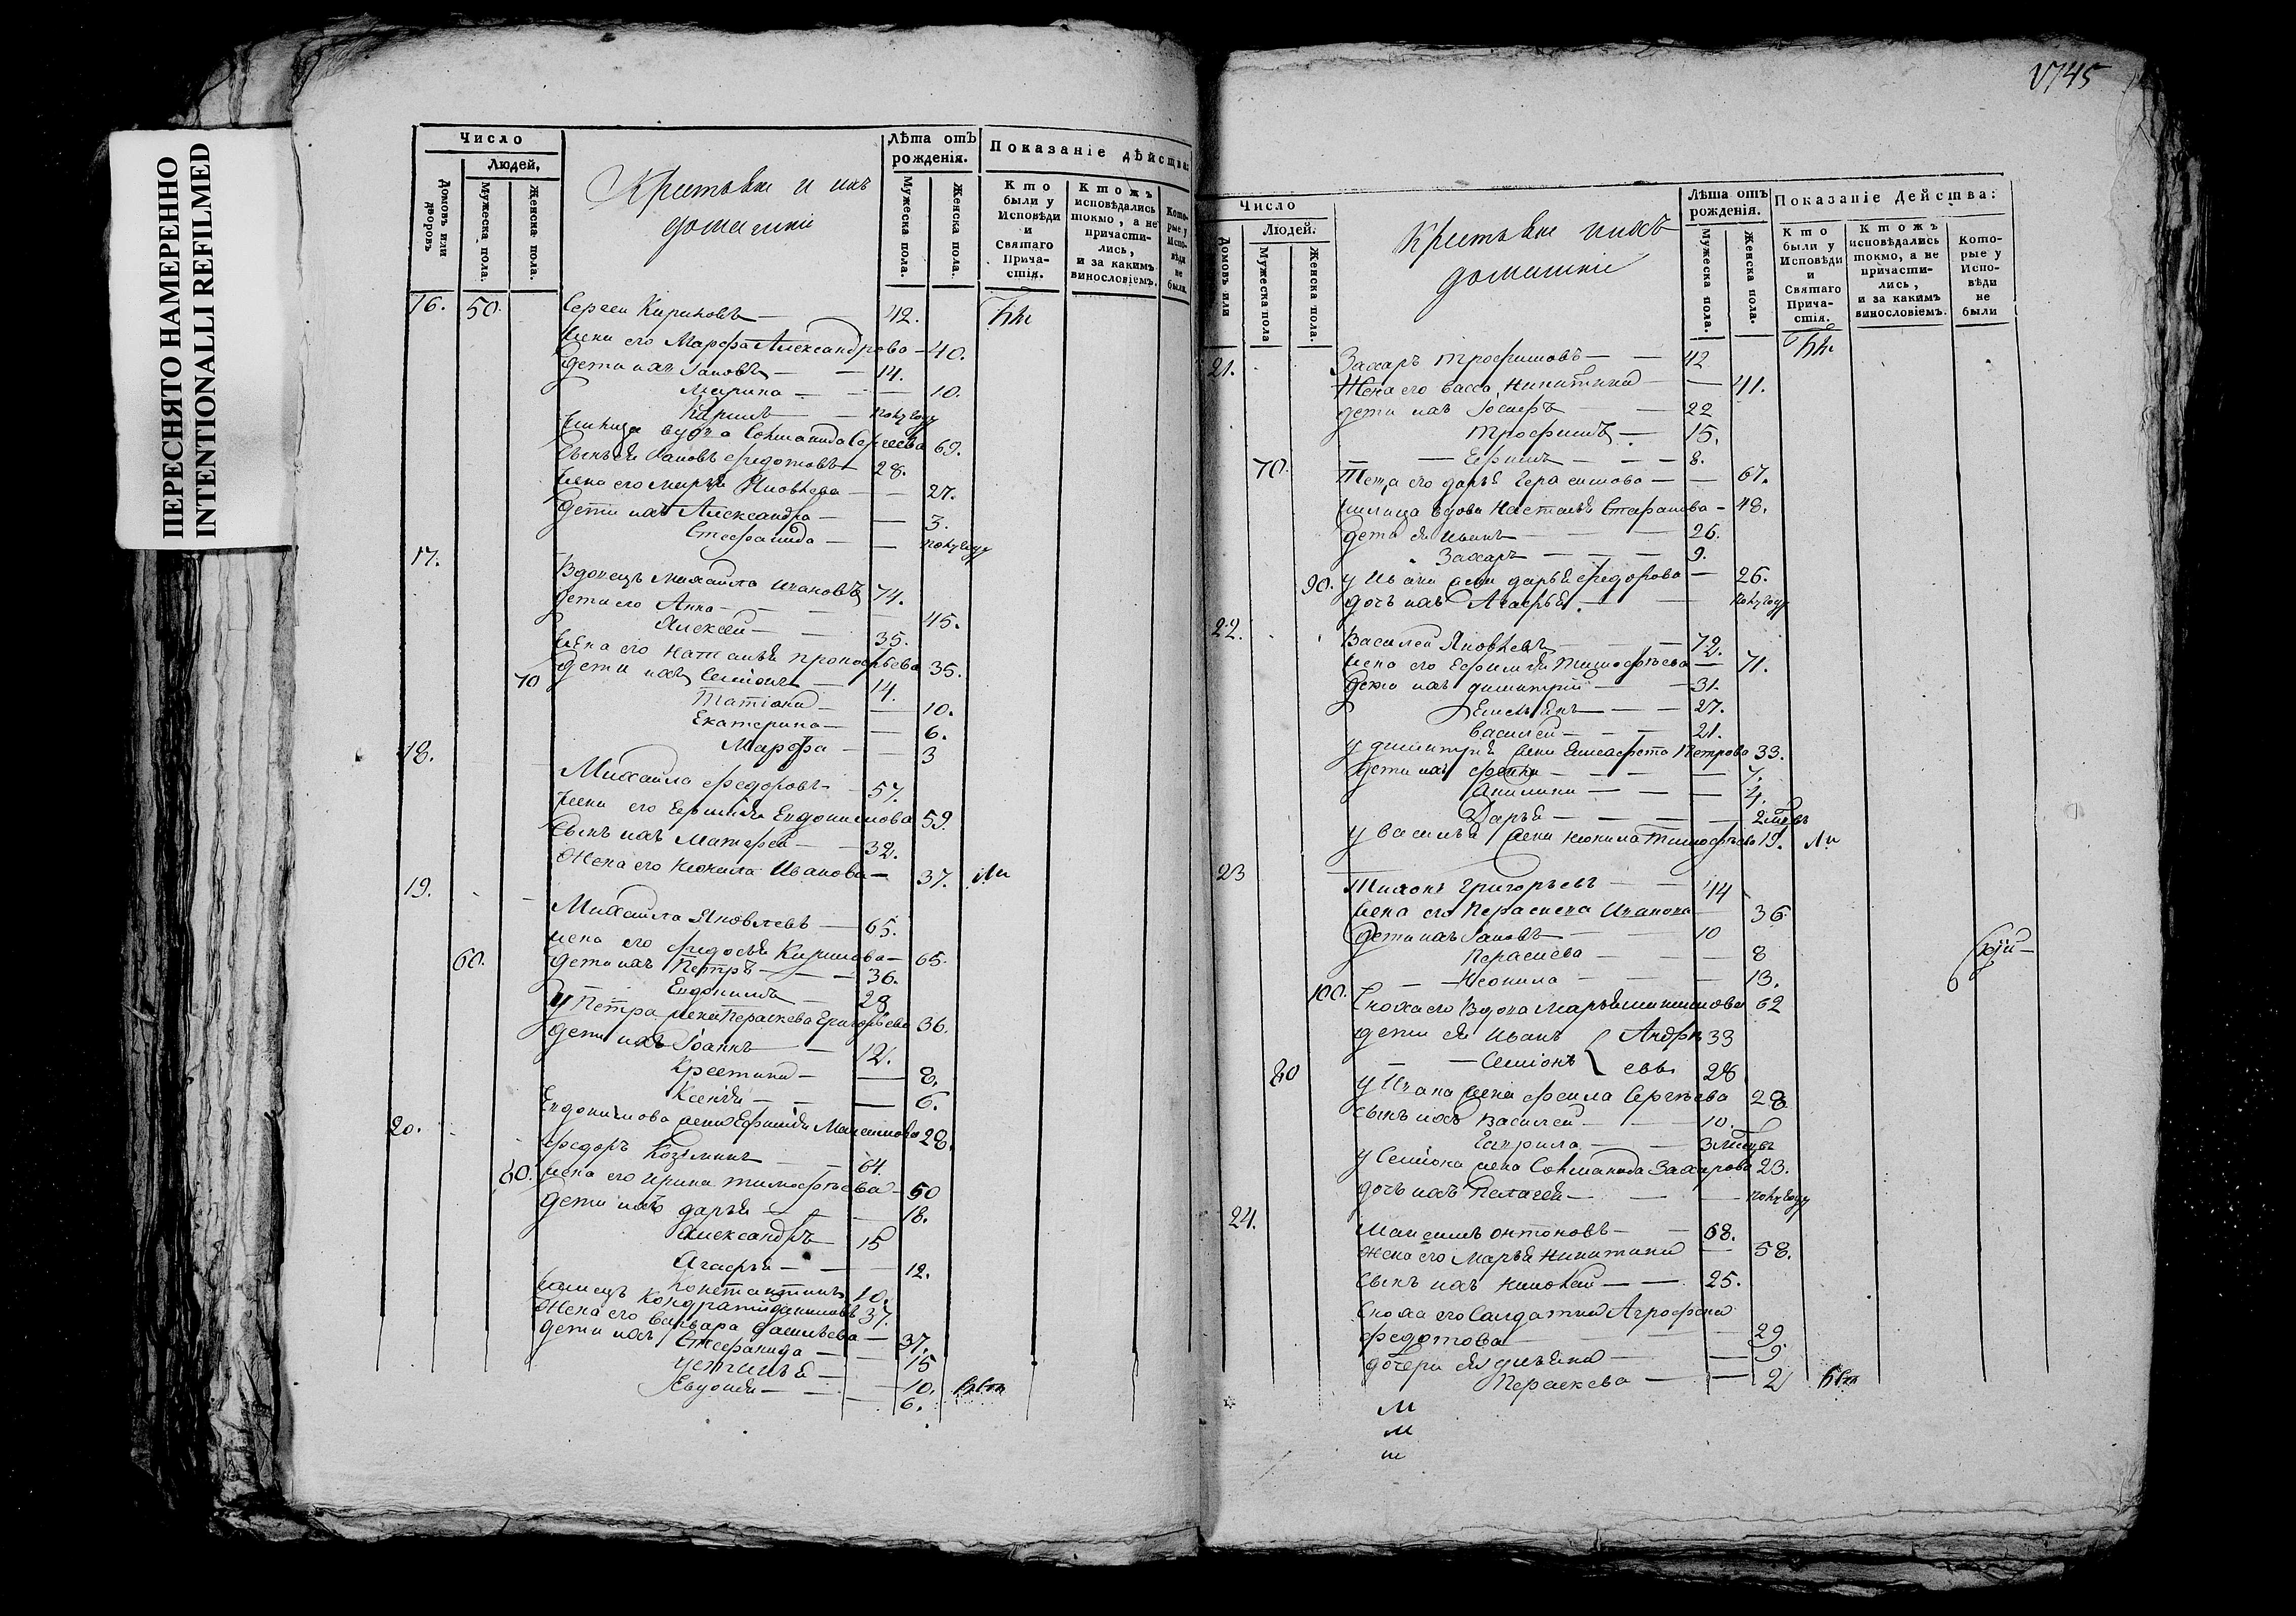 ПЕРЕСНЯТО НАМЕРЕННО
INTENTIONALLI REFILMED
Число
Людей,
Домовъ или дворовъ
Мужеска пола.
Женска пола.
Крестьяне и ихъ
домашніе
Лѣта отъ рожденія.
Мужеска пола.
Женска пола.
Показаніе дѣйства:
Кто были у Исповѣди и Святаго Причастія.
Ктожъ исповѣдались токмо, а не причастились, и за какимъ винословіемъ.
Которые у Исповѣди не были.
16. 50. Сергеи Кириловъ 42.
жена его Марфа Александрова 40.
дети ихъ Іаковъ 14.
Марина 10.
Кирилъ полугоду
вдова Соломанида Сергеева 69.
Сынъ ея Іаковъ Федотовъ 28.
жена его Марья Яковлева 27.
дети ихъ Александра 3.
Стефанида полугоду
17. Вдовецъ Михаила Ивановъ 74.
дети его Анна 45.
Алексеи 35.
жена его Наталья Прокофьева 35.
70 дети ихъ Семіонъ 14.
Татіана 10.
Екатерина 6.
Марфа 3
18. Михаила Федоровъ 57.
жена его Евдокимова 59.
Сынъ ихъ Матфеи 32.
Жена его Неонила Иванова 37.
19. Михаила Яковлевъ 65.
жена его Федосья Кирилова 65.
60. дети ихъ Петръ 36.
Евдокимъ 28
у Петра жена Параскева Григорьева 36.
дети ихъ Іоаннъ 12.
Крестина 8.
Ксенья 6.
Евдокимова жена Ефимья Максимова 28.
20. Федоръ Козминъ 64.
80. жена его Ирина Тимофѣева 50
дети ихъ Дарья 18.
Александръ 15
Агафья 12.
Константинъ 10.
Кондратіи Даниловъ 37.
Жена его Варвара Васильева 37.
дети ихъ Стефанида 15
Устинья 10.
Евдокия 6.
1745
Число
Людей.
Домовъ или
Мужеска пола
Женска пола.
Крестьяне ихъ
домашніе
Лѣта отъ рожденія.
Мужеска пола.
Женска пола.
Показаніе Действа:
Кто были у Исповѣди и Святаго Причастія.
Ктожъ исповѣдались токмо, а не причастились, и за какимъ винословіемъ.
Которые у Исповѣди не были
21. Захаръ Трофимовъ 42
Жена его Васса Никитина 41.
дети ихъ Іосифъ 22
Трофимъ 15.
70. Ефимъ 8.
Теща его Дарья Герасимова 67.
вдова Настасья Стафанова 48.
дети ея Иванъ 26.
Захаръ 9.
90. у Ивана жена Дарья Федорова 26.
дочь ихъ Агафья полугоду
22. Василеи Яковлевъ 72.
жена его Ефимья Тимофѣева 71.
дети ихъ Димитріи 31.
Емельянъ 27.
Василеи 21.
у Димитрія жена Елисафета Петрова 33.
дети ихъ 7.
Акилина 4.
Дарья 2
у Василья жена Неонила Тимофѣева 19.
23 Тихонъ Григорьевъ 44
жена его Параскева Иванова 36.
дети ихъ Іаковъ 10
Параскева 8
Неонила 13.
100. Сноха его вдова Марья Максимова 62
дети ея Иванъ Андрѣ 33
80 Семіонъ евы 28
у Ивана жена Фекла Сергѣева 28
сынъ ихъ Василеи 10.
Гаврила 3
у Семіона жена Соломанида Захарова 23.
дочь ихъ Пелагея полугоду
24. Максимъ Антоновъ 68.
Жена его Марья Никитина 58.
сынъ ихъ Николаи 25.
Сноха его Салдатка Агрофена
Федотова 29.
дочери ея Ульяна 9
Параскева 2